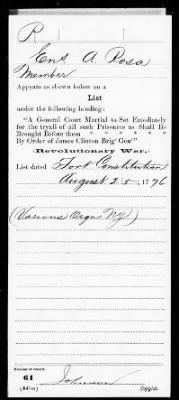 R
Ens. A Rosa
Member
Appears as shown below on a
List
under the following heading:
"A General Court Martial to Set Emediately
for the tryall of all such Prisoners as Shall Be
Brought Before them " " " " "
By Order of James Clinton Brigr Genl"
Revolutionary War.
List dated Fort Constitution
August 28, 1776
(Various Orgns NY)
Number of record:
61
Johnson